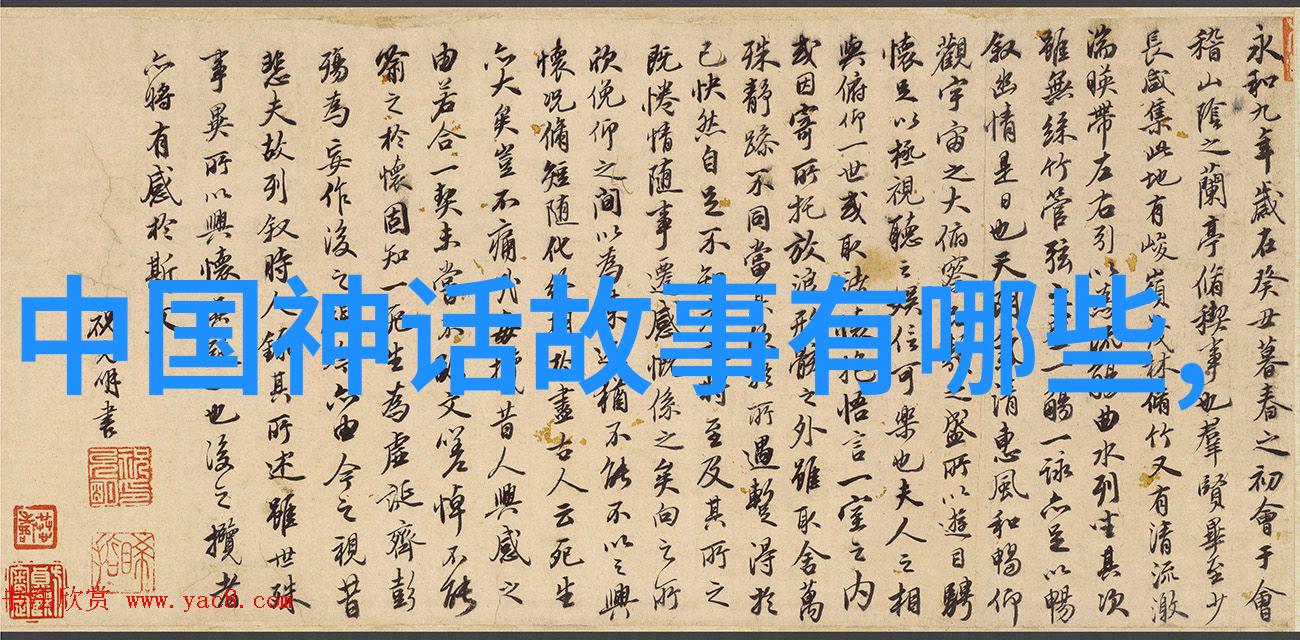 永和九年歲在癸丑暮春之初會于會
稽山陰之蘭亭脩稧事也羣賢畢至少
長咸集此地有峻嶺茂林脩竹又有清流激
湍暎帶左右引以為流觴曲水列坐其次
雖無絲竹管弦之一觴一詠亦足以暢
叙幽情是日也天朗清惠風和暢仰
觀宇宙之大俯察之盛所以遊目騁
懷足以極視聽之娛信可樂也夫人之相
與俯仰一世或取諸懷抱悟言一室之內
或因寄所托放浪形骸之外雖取舍萬
殊静躁不同當其於所遇暫得於
己快然自足不知將至及其所之
既惓情随事遷感慨係之矣向之所
欣俛仰之間以為陳迹猶不能不以之興
懷况脩短随化終期於盡古人云死生
亦大矣豈不痛哉每攬昔人興感之
由若合一契未嘗不文嗟悼不能
喻之於懷固知一死生為虛誕齊彭
殤為妄作後之視亦由今之視昔
悲夫故列叙時人録其所述雖世殊
事異所以興懷也後之攬者
亦將有感於斯文
祝允明書
中国神话故事有哪些,
书法欣赏 www.yac8.com